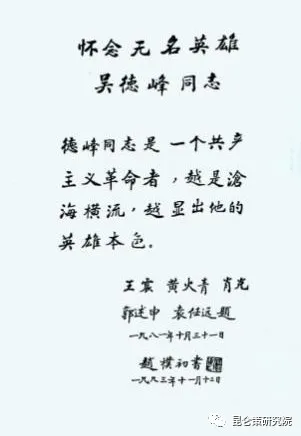 怀念无名英雄
吴德峰同志
德峰同志是一个共产
主义革命者，越是滄
海横流，越显出他的
英雄本色。
王震 黄火青 肖克
郭述申 袁任远 题
一九八一年十月三十一日
趙樸初书
一九九三年十一月十二日
昆仑策研究院